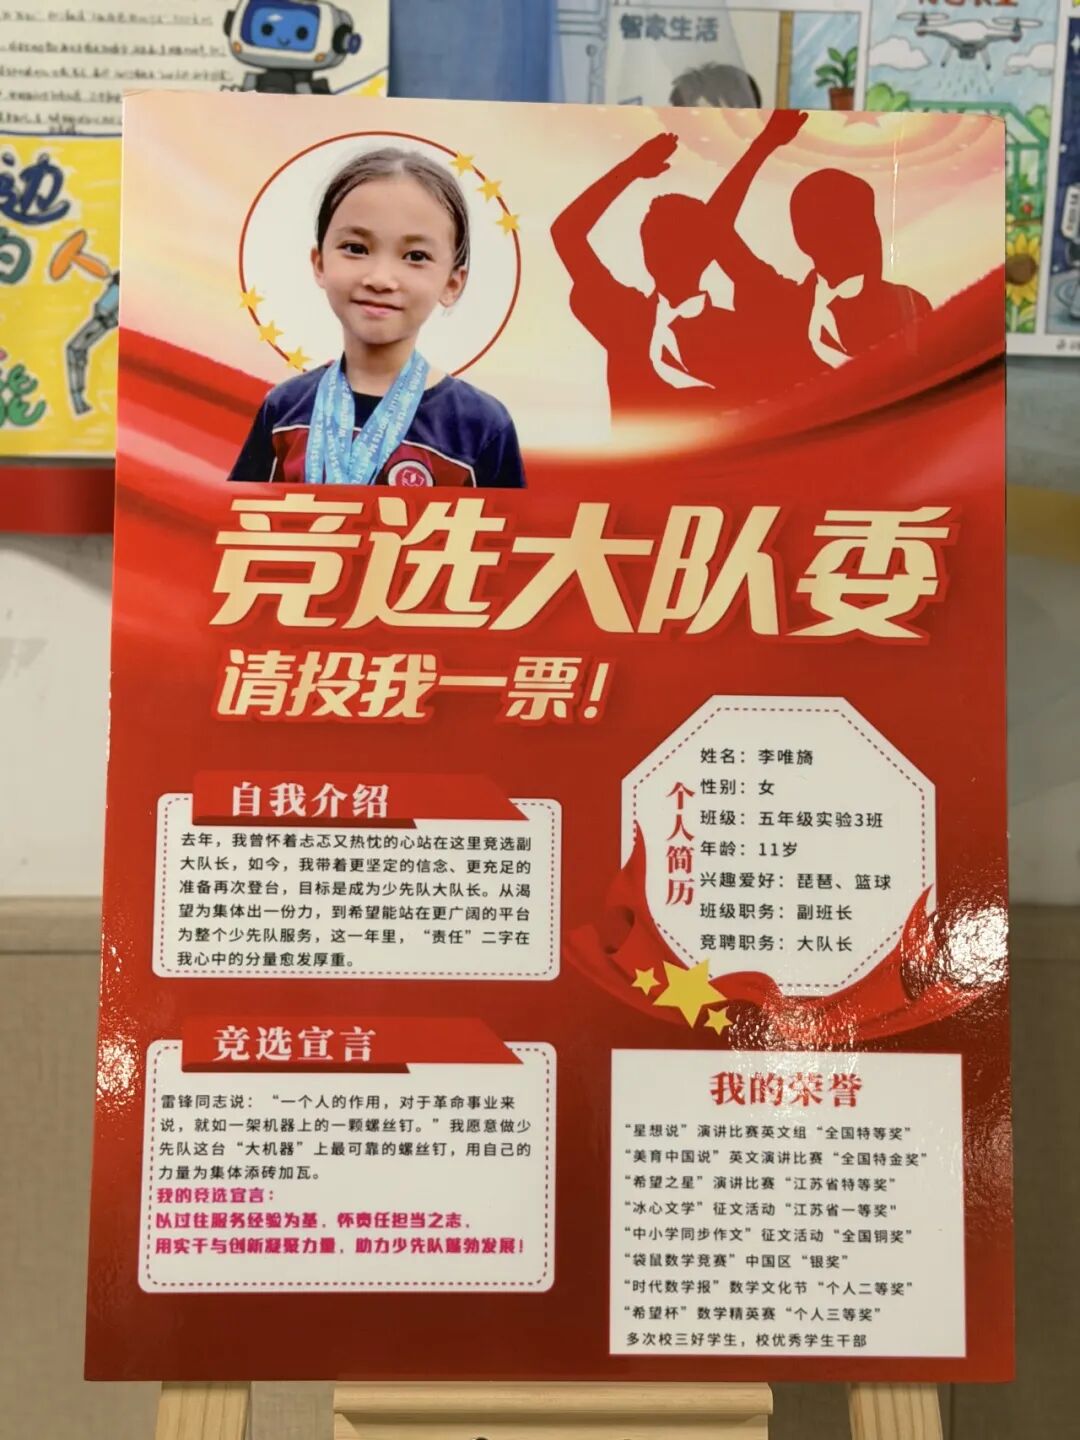 智家生活
边
的人
能
竞选大队委
请投我一票！
姓名：李唯旖
性别：女
班级：五年级实验3班
年龄：11岁
兴趣爱好：琵琶、篮球
班级职务：副班长
竞聘职务：大队长
个人简历
自我介绍
去年，我曾怀着忐忑又热忱的心站在这里竞选副
大队长，如今，我带着更坚定的信念、更充足的
准备再次登台，目标是成为少先队大队长。从渴
望为集体出一份力，到希望能站在更广阔的平台
为整个少先队服务，这一年里，“责任”二字在
我心中的分量愈发厚重。
竞选宣言
雷锋同志说：“一个人的作用，对于革命事业来
说，就如一架机器上的一颗螺丝钉。”我愿意做少
先队这台“大机器”上最可靠的螺丝钉，用自己的
力量为集体添砖加瓦。
我的竞选宣言：
以过往服务经验为基，怀责任担当之志，
用实干与创新凝聚力量，助力少先队蓬勃发展！
我的荣誉
“星想说”演讲比赛英文组“全国特等奖”
“美育中国说”英文演讲比赛“全国特金奖”
“希望之星”演讲比赛“江苏省特等奖”
“冰心文学”征文活动“江苏省一等奖”
“中小学同步作文”征文活动“全国铜奖”
“袋鼠数学竞赛”中国区“银奖”
“时代数学报”数学文化节“个人二等奖”
“希望杯”数学精英赛“个人三等奖”
多次校三好学生，校优秀学生干部